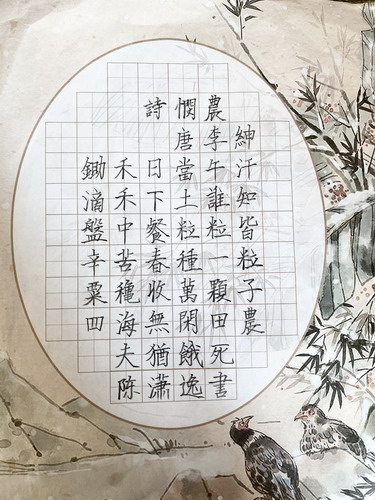 詩憫農
唐李紳
鋤禾日當午汗
滴禾下土誰知
盤中餐粒粒皆
辛苦春種一粒
粟穐收萬顆子
四海無閑田農
夫猶餓死
陈潇逸書